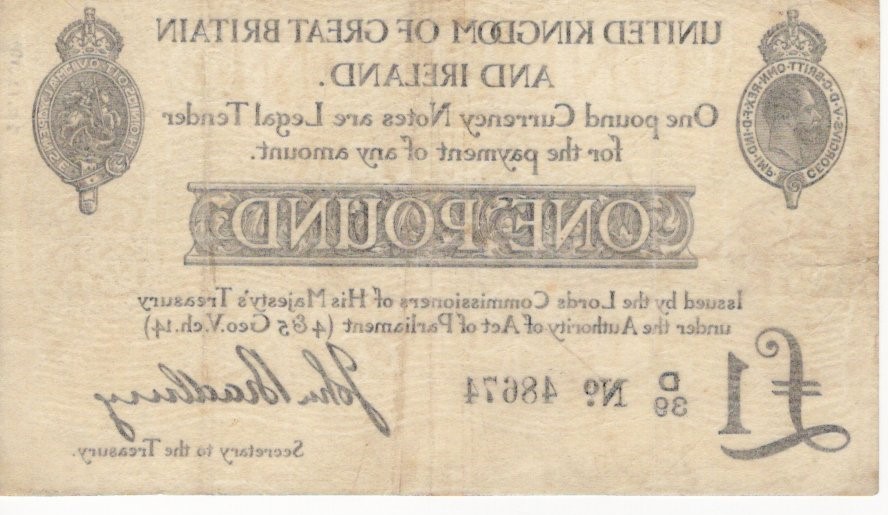 UNITED KINGDOM OF GREAT BRITAIN
AND IRELAND.
One pound Currency Notes are Legal Tender
for the payment of any amount.
ONE POUND
Issued by the Lords Commissioners of His Majesty's Treasury
under the Authority of Act of Parliament (4 & 5 Geo.V.ch.14.)
£1
D
39
No. 48674
John Bradbury
Secretary to the Treasury.
GEORGIVS·V·D·G·BRITT·OMN·REX·F·D·IND·IMP·